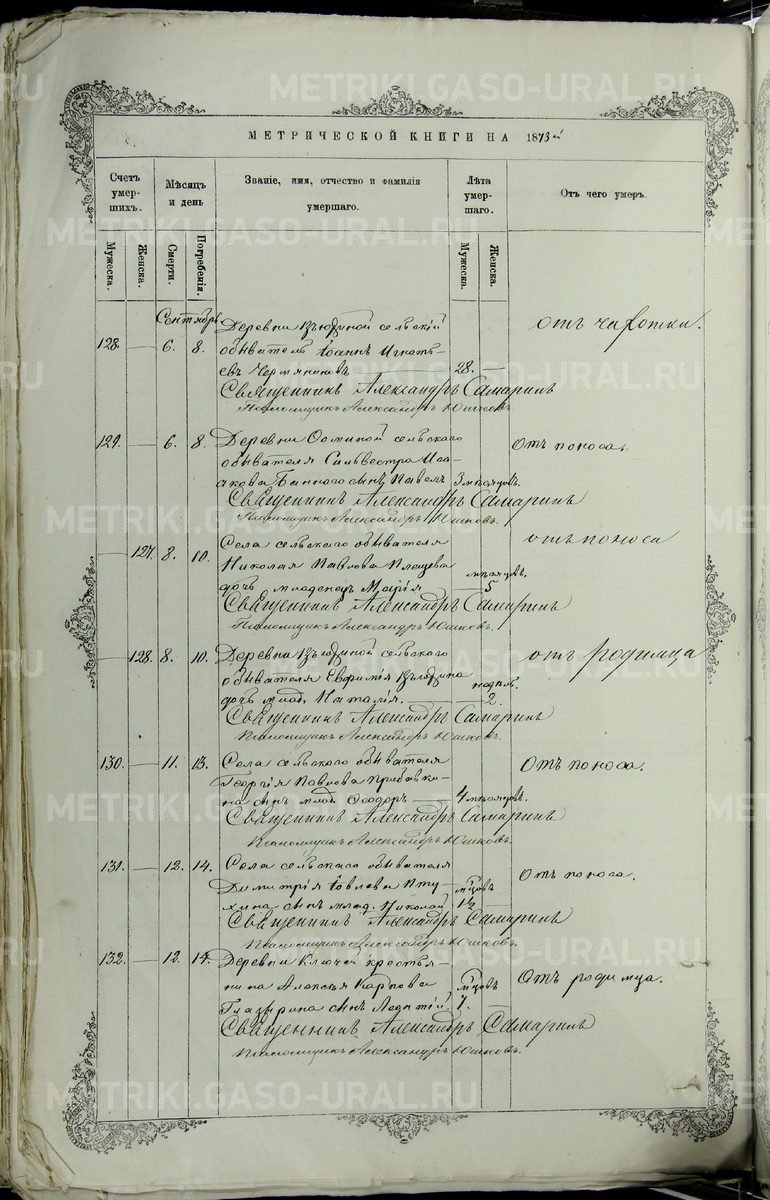 METRIKI.GASO-URAL.RU
МЕТРИЧЕСКОЙ КНИГИ НА 1873й
Счетъ умер- шихъ.
Мѣсяцъ и день
Званіе, имя, отчество и фамилія умершаго.
Лѣта умер- шаго.
Отъ чего умеръ.
Мужеска.
Женска.
Смерти.
Погребенія.
Мужеска.
Женска.
Сентябрь
Деревни сельскій
отъ чахотки.
128. — 6. 8. обыватель Іоаннъ Игнать-
евъ 28. —
Священникъ Александръ Самаринъ
Псаломщикъ Александръ Юшковъ.
129. — 6. 8. Деревни сельскаго
Отъ поноса.
обывателя Сильвестра Иса-
акова сынъ Павелъ 3 мѣсяцовъ.
Священникъ Александръ Самаринъ
Псаломщикъ Александръ Юшковъ.
Села сельскаго обывателя
отъ поноса
— 127. 8. 10. Николая Павлова Плещева
мѣсяцовъ.
дочь младенец Марія — 5
Священникъ Александръ Самаринъ
Псаломщикъ Александръ Юшковъ.
— 128. 8. 10. Деревни сельскаго
отъ родимца
обывателя Евфимія
недѣль.
дочь млад. Наталія. — 2.
Священникъ Александръ Самаринъ
Псаломщикъ Александръ Юшковъ.
130. — 11. 13. Села сельскаго обывателя
Отъ поноса.
Георгія Павлова
на сынъ млад Ѳеодоръ — 4 мѣсяцовъ.
Священникъ Александръ Самаринъ
Псаломщикъ Александръ Юшковъ.
131. — 12. 14. Села сельскаго обывателя
Отъ поноса.
Димитрія Іовлева
сынъ млад. Николай
Священникъ Александръ Самаринъ
Псаломщикъ Александръ Юшковъ.
132. — 12. 14. Деревни Ключей крестья-
Отъ родимца.
нина Алексѣя Карпова
Глазырина сынъ Леонтій. 7.
Священникъ Александръ Самаринъ
Псаломщикъ Александръ Юшковъ.